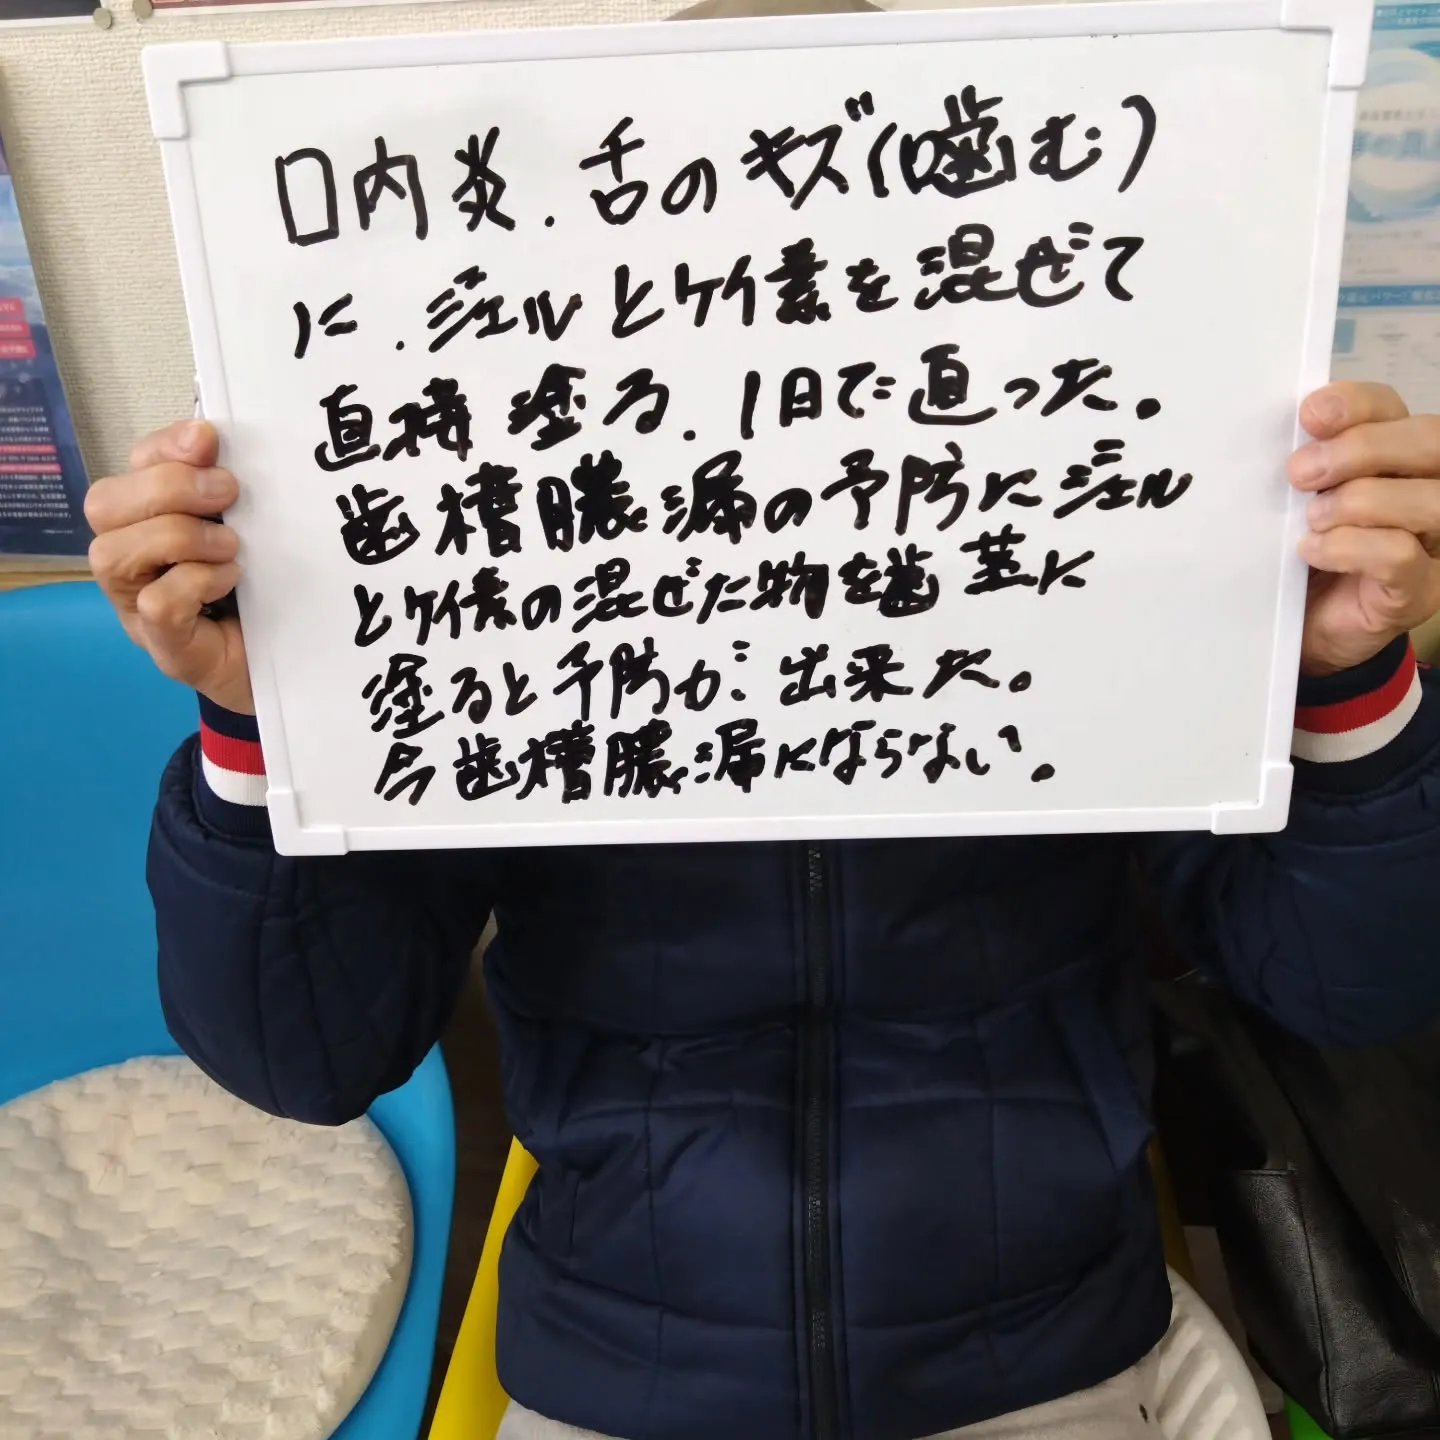 口内炎.舌のキズ(噛む)
に.ジェルとケイ素を混ぜて
直接塗る.1日で直った。
歯槽膿漏の予防にジェル
とケイ素の混ぜた物を歯茎に
塗ると予防が出来た。
今歯槽膿漏にならない。